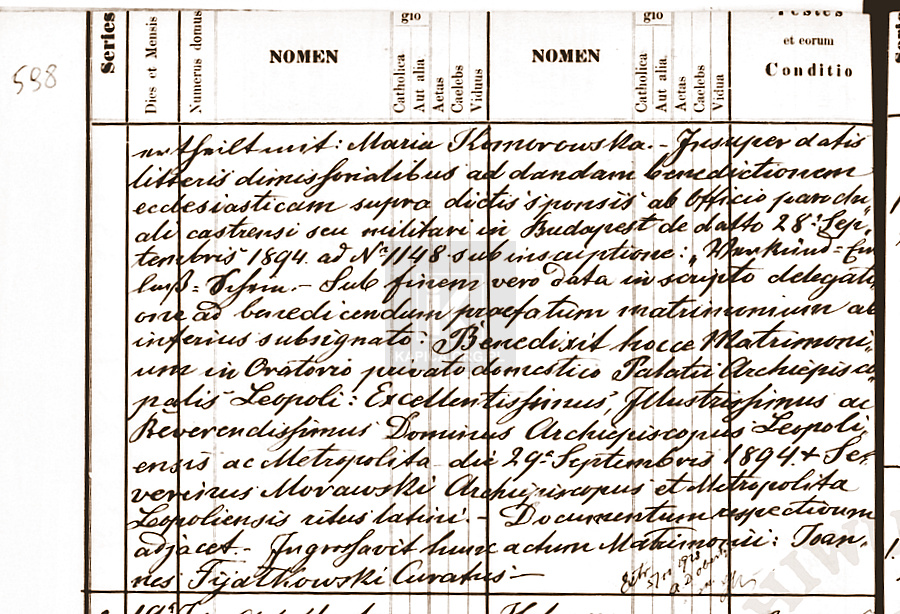 598
Series
Dies et Mensis
Numerus domus
NOMEN
gio
Catholica
Aut alia
Aetas
Caelebs
Viduus
NOMEN
gio
Catholica
Aut alia.
Aetas
Caelebs
Vidua
Testes
et eorum
Conditio
ertheilt mit: Maria Komorowska.- Insuper datis
litteris dimissorialibus ad dandam benedictionem
ecclesiasticam supra dictis sponsis ab Officio parochi„
ali castrensi seu militari in Budapest de datto 28ª Sep„
tembris 1894 ad Nr 1148 sub inscriptione:
Sub finem vero data in scripto delegati„
one ad benedicendum praefatum matrimonium ab
inferius subsignato: Benedixit hocce Matrimoni„
um in Oratorio privato domestico Palatii Archiepisco„
palis Leopoli: Excellentissimus, Illustrissimus ac
Reverendissimus Dominus Archiepiscopus Leopoli„
ensis ac Metropolita die 29ª Septembris 1894 + Se„
verinus Morawski Archiepiscopus et Metropolita
Leopoliensis ritus latini.- Documentum respectivum
adjacet.- Ingrossavit hunc actum Matrimonii: Joan„
nes Fijałkowski Curatus-